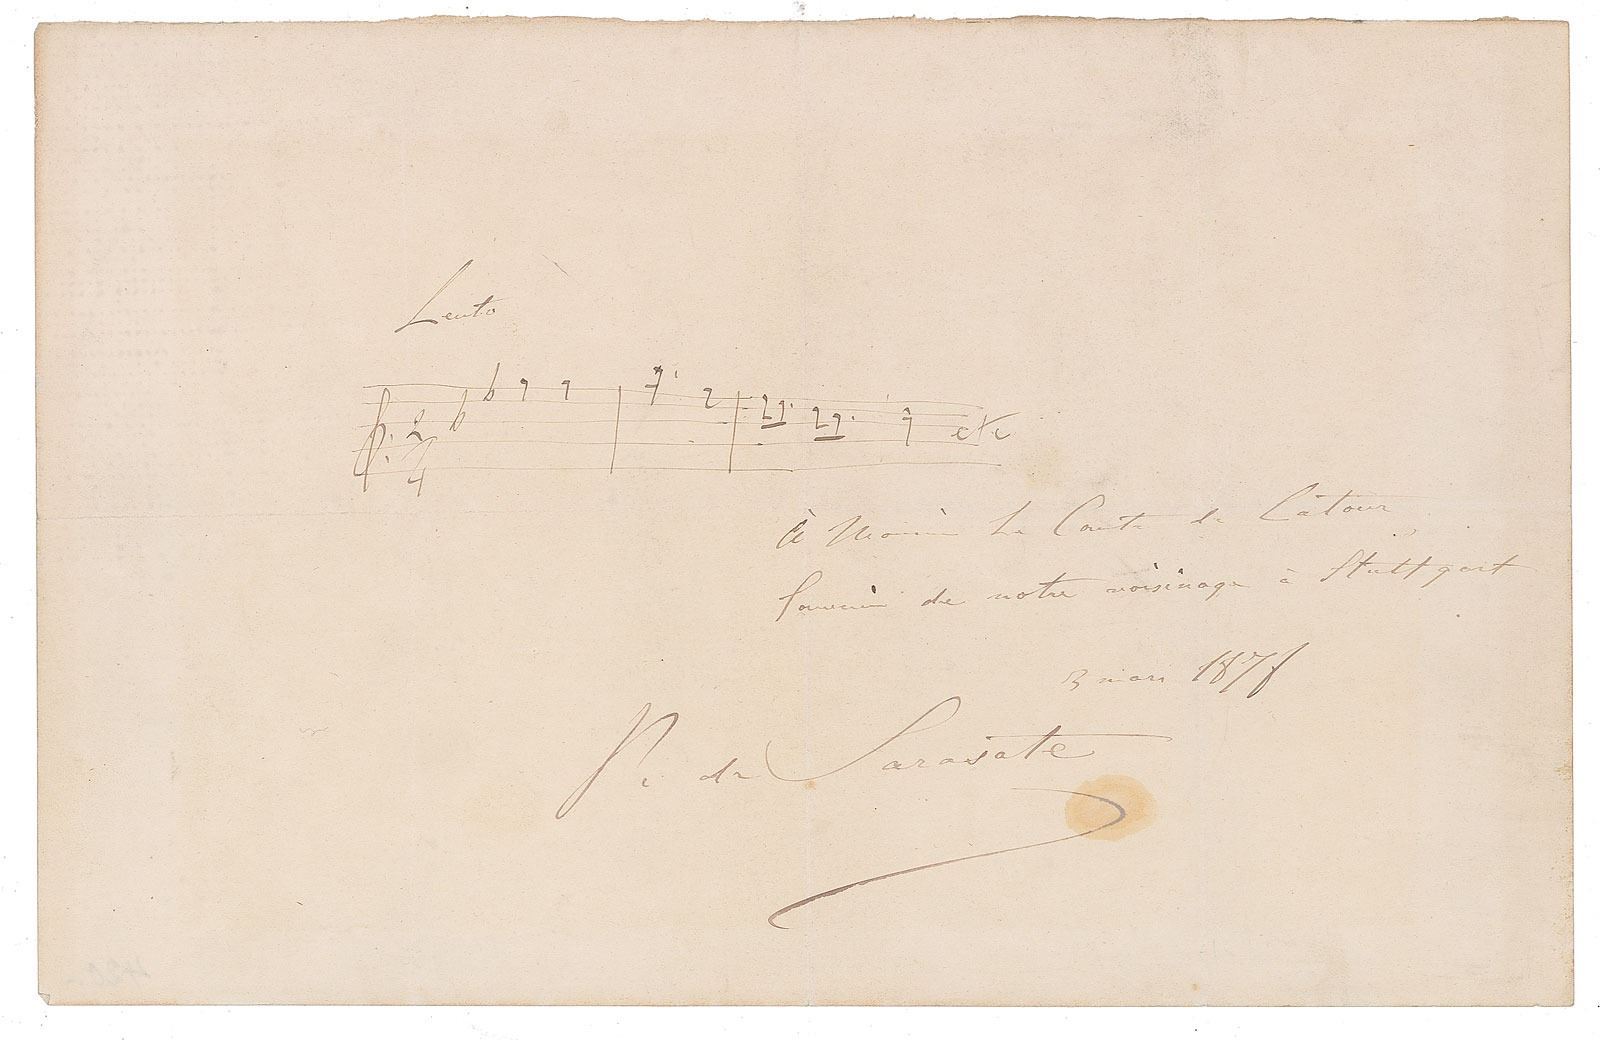 Lento
2/4
etc
À Monsieur Le Comte de Latour
Souvenir de notre voisinage à Stuttgart
3 mars 187
P. de Sarasate